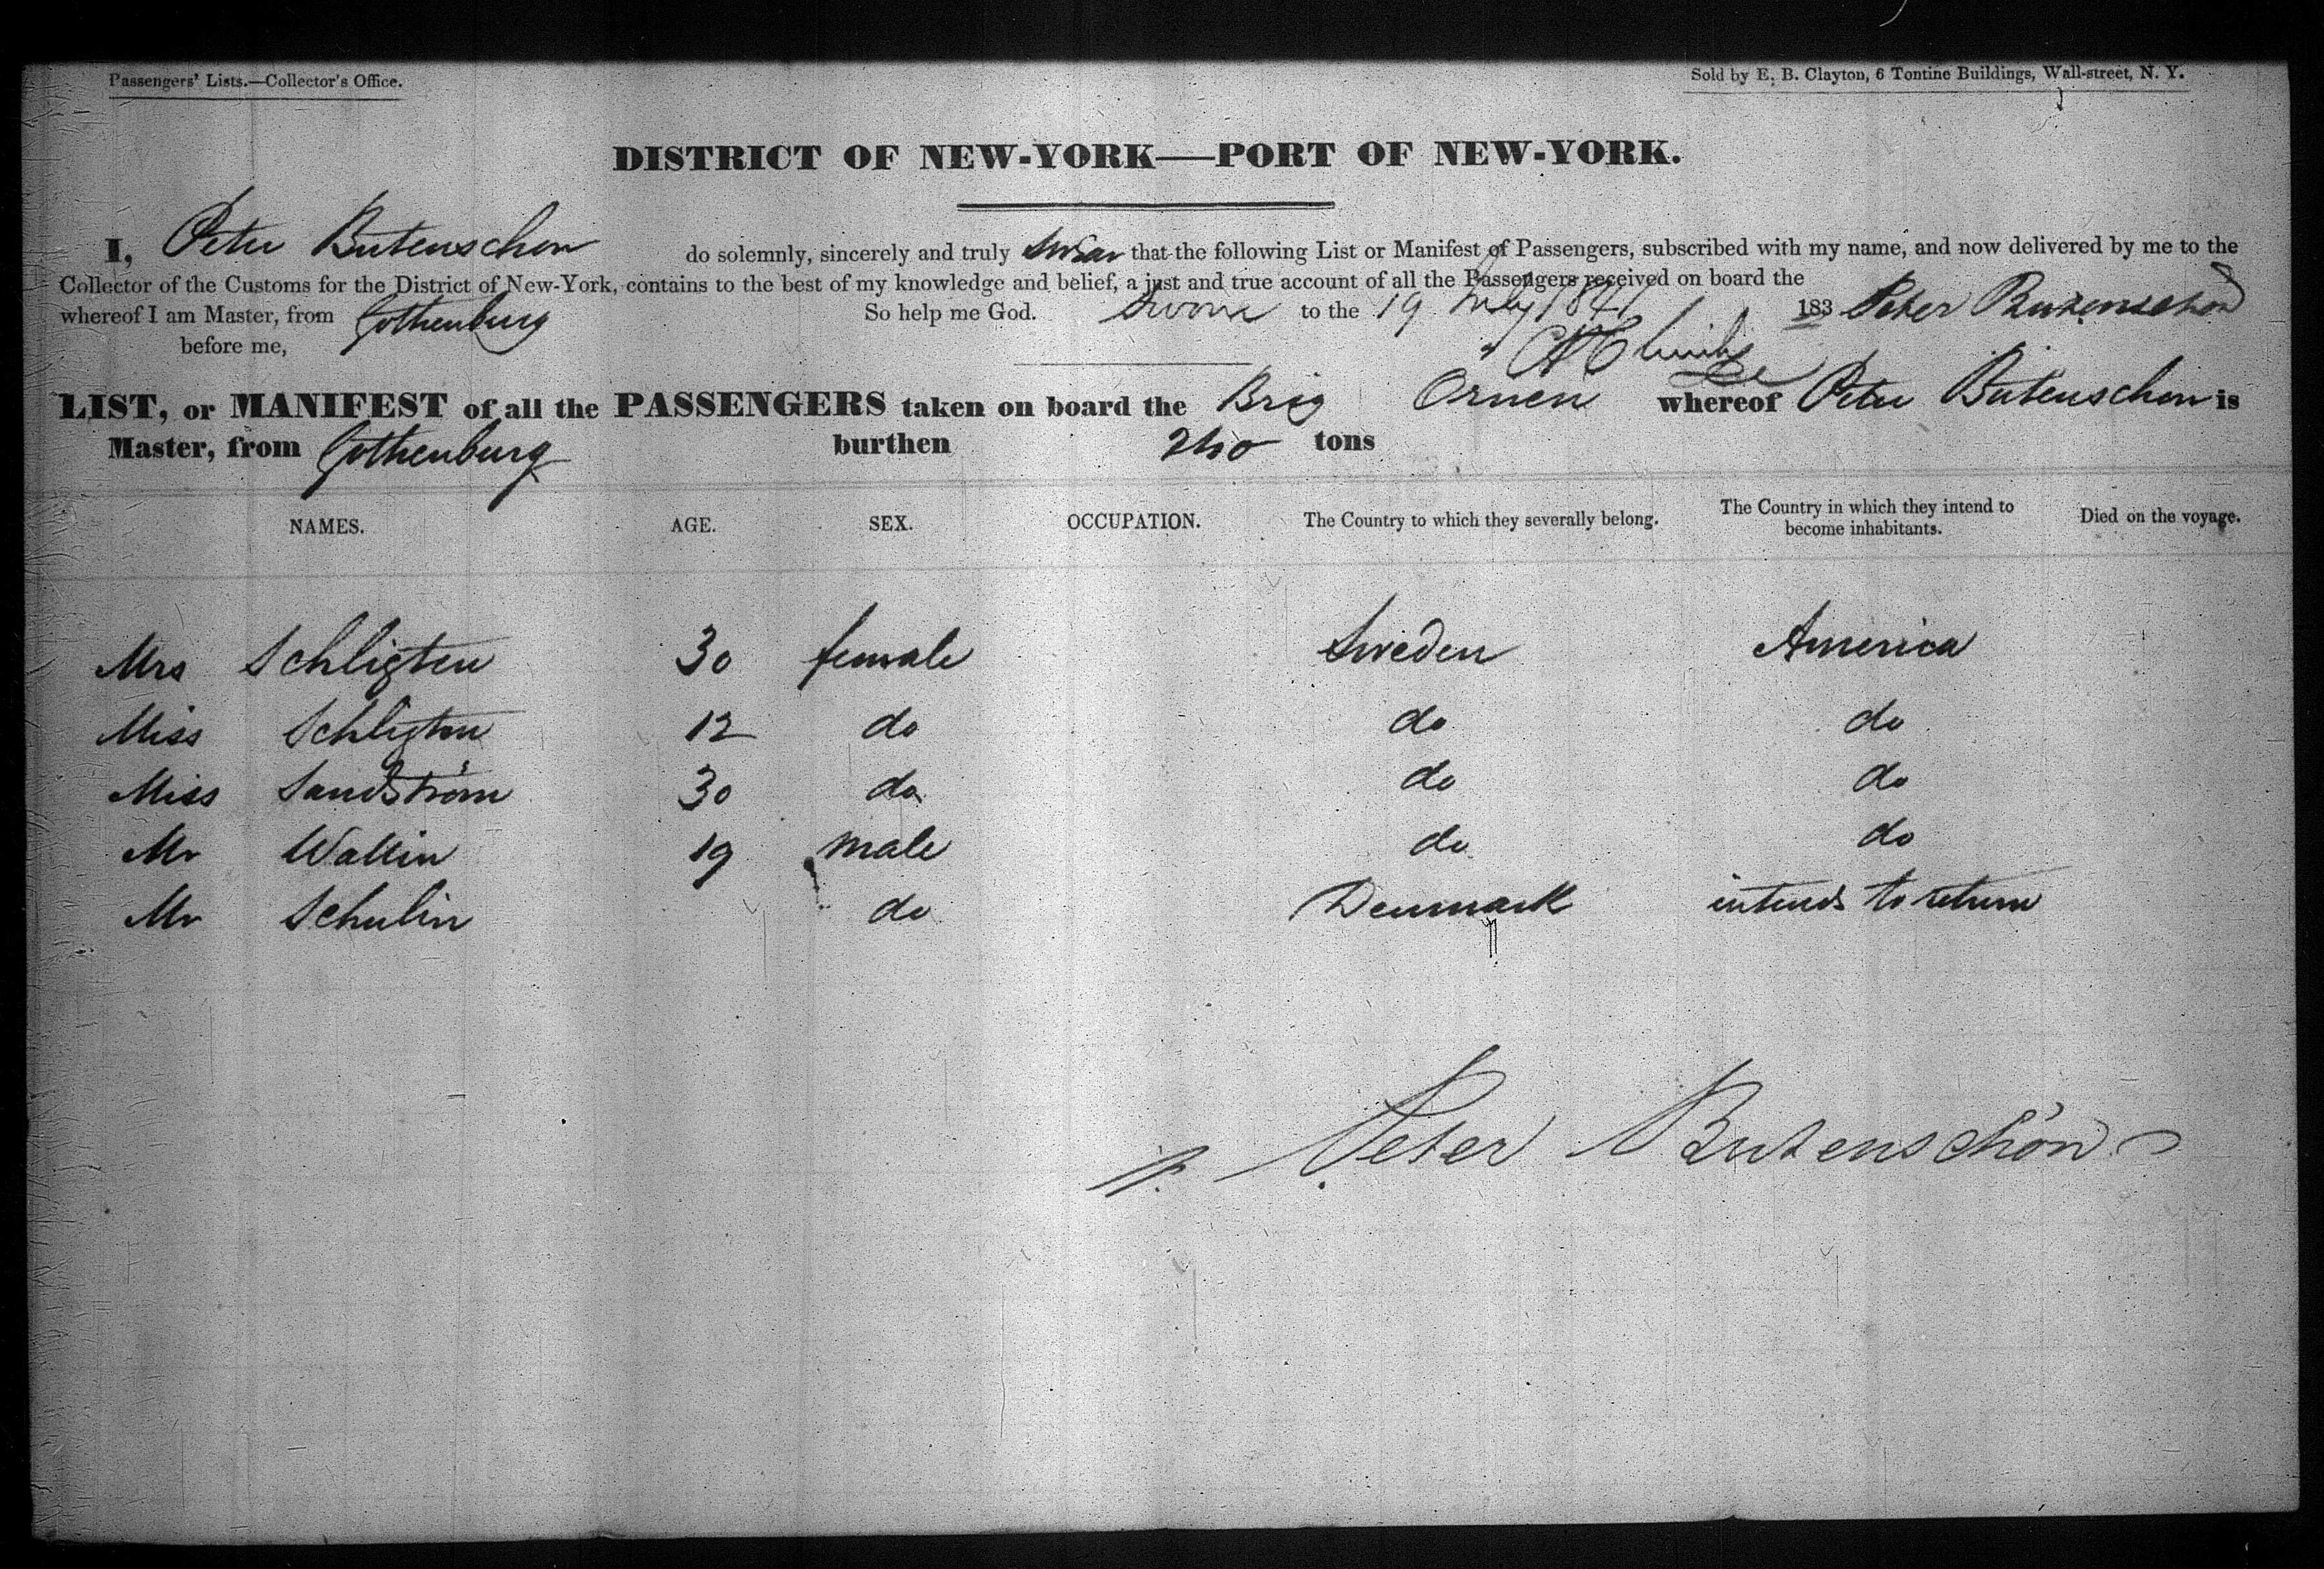 Passengers' Lists.—Collector's Office.
Sold by E. B. Clayton, 6 Tontine Buildings, Wall-street, N. Y.
DISTRICT OF NEW-YORK—PORT OF NEW-YORK.
I, Peter Butenschon do solemnly, sincerely and truly swear that the following List or Manifest of Passengers, subscribed with my name, and now delivered by me to the
Collector of the Customs for the District of New-York, contains to the best of my knowledge and belief, a just and true account of all the Passengers received on board the
whereof I am Master, from Gothenburg So help me God. Sworn to the 19 July 1841 183 Peter Butenschön
before me,
LIST, or MANIFEST of all the PASSENGERS taken on board the Brig Ornen whereof Peter Butenschon is
Master, from Gothenburg burthen tons
NAMES. AGE. SEX. OCCUPATION. The Country to which they severally belong. The Country in which they intend to become inhabitants. Died on the voyage.
Mrs Schligten 30 female Sweden America
Miss Schligten 12 do do do
Miss Sandström 30 do do do
Mr Wallin 19 male do do
Mr Schulin do Denmark intends to return
Peter Butenschön